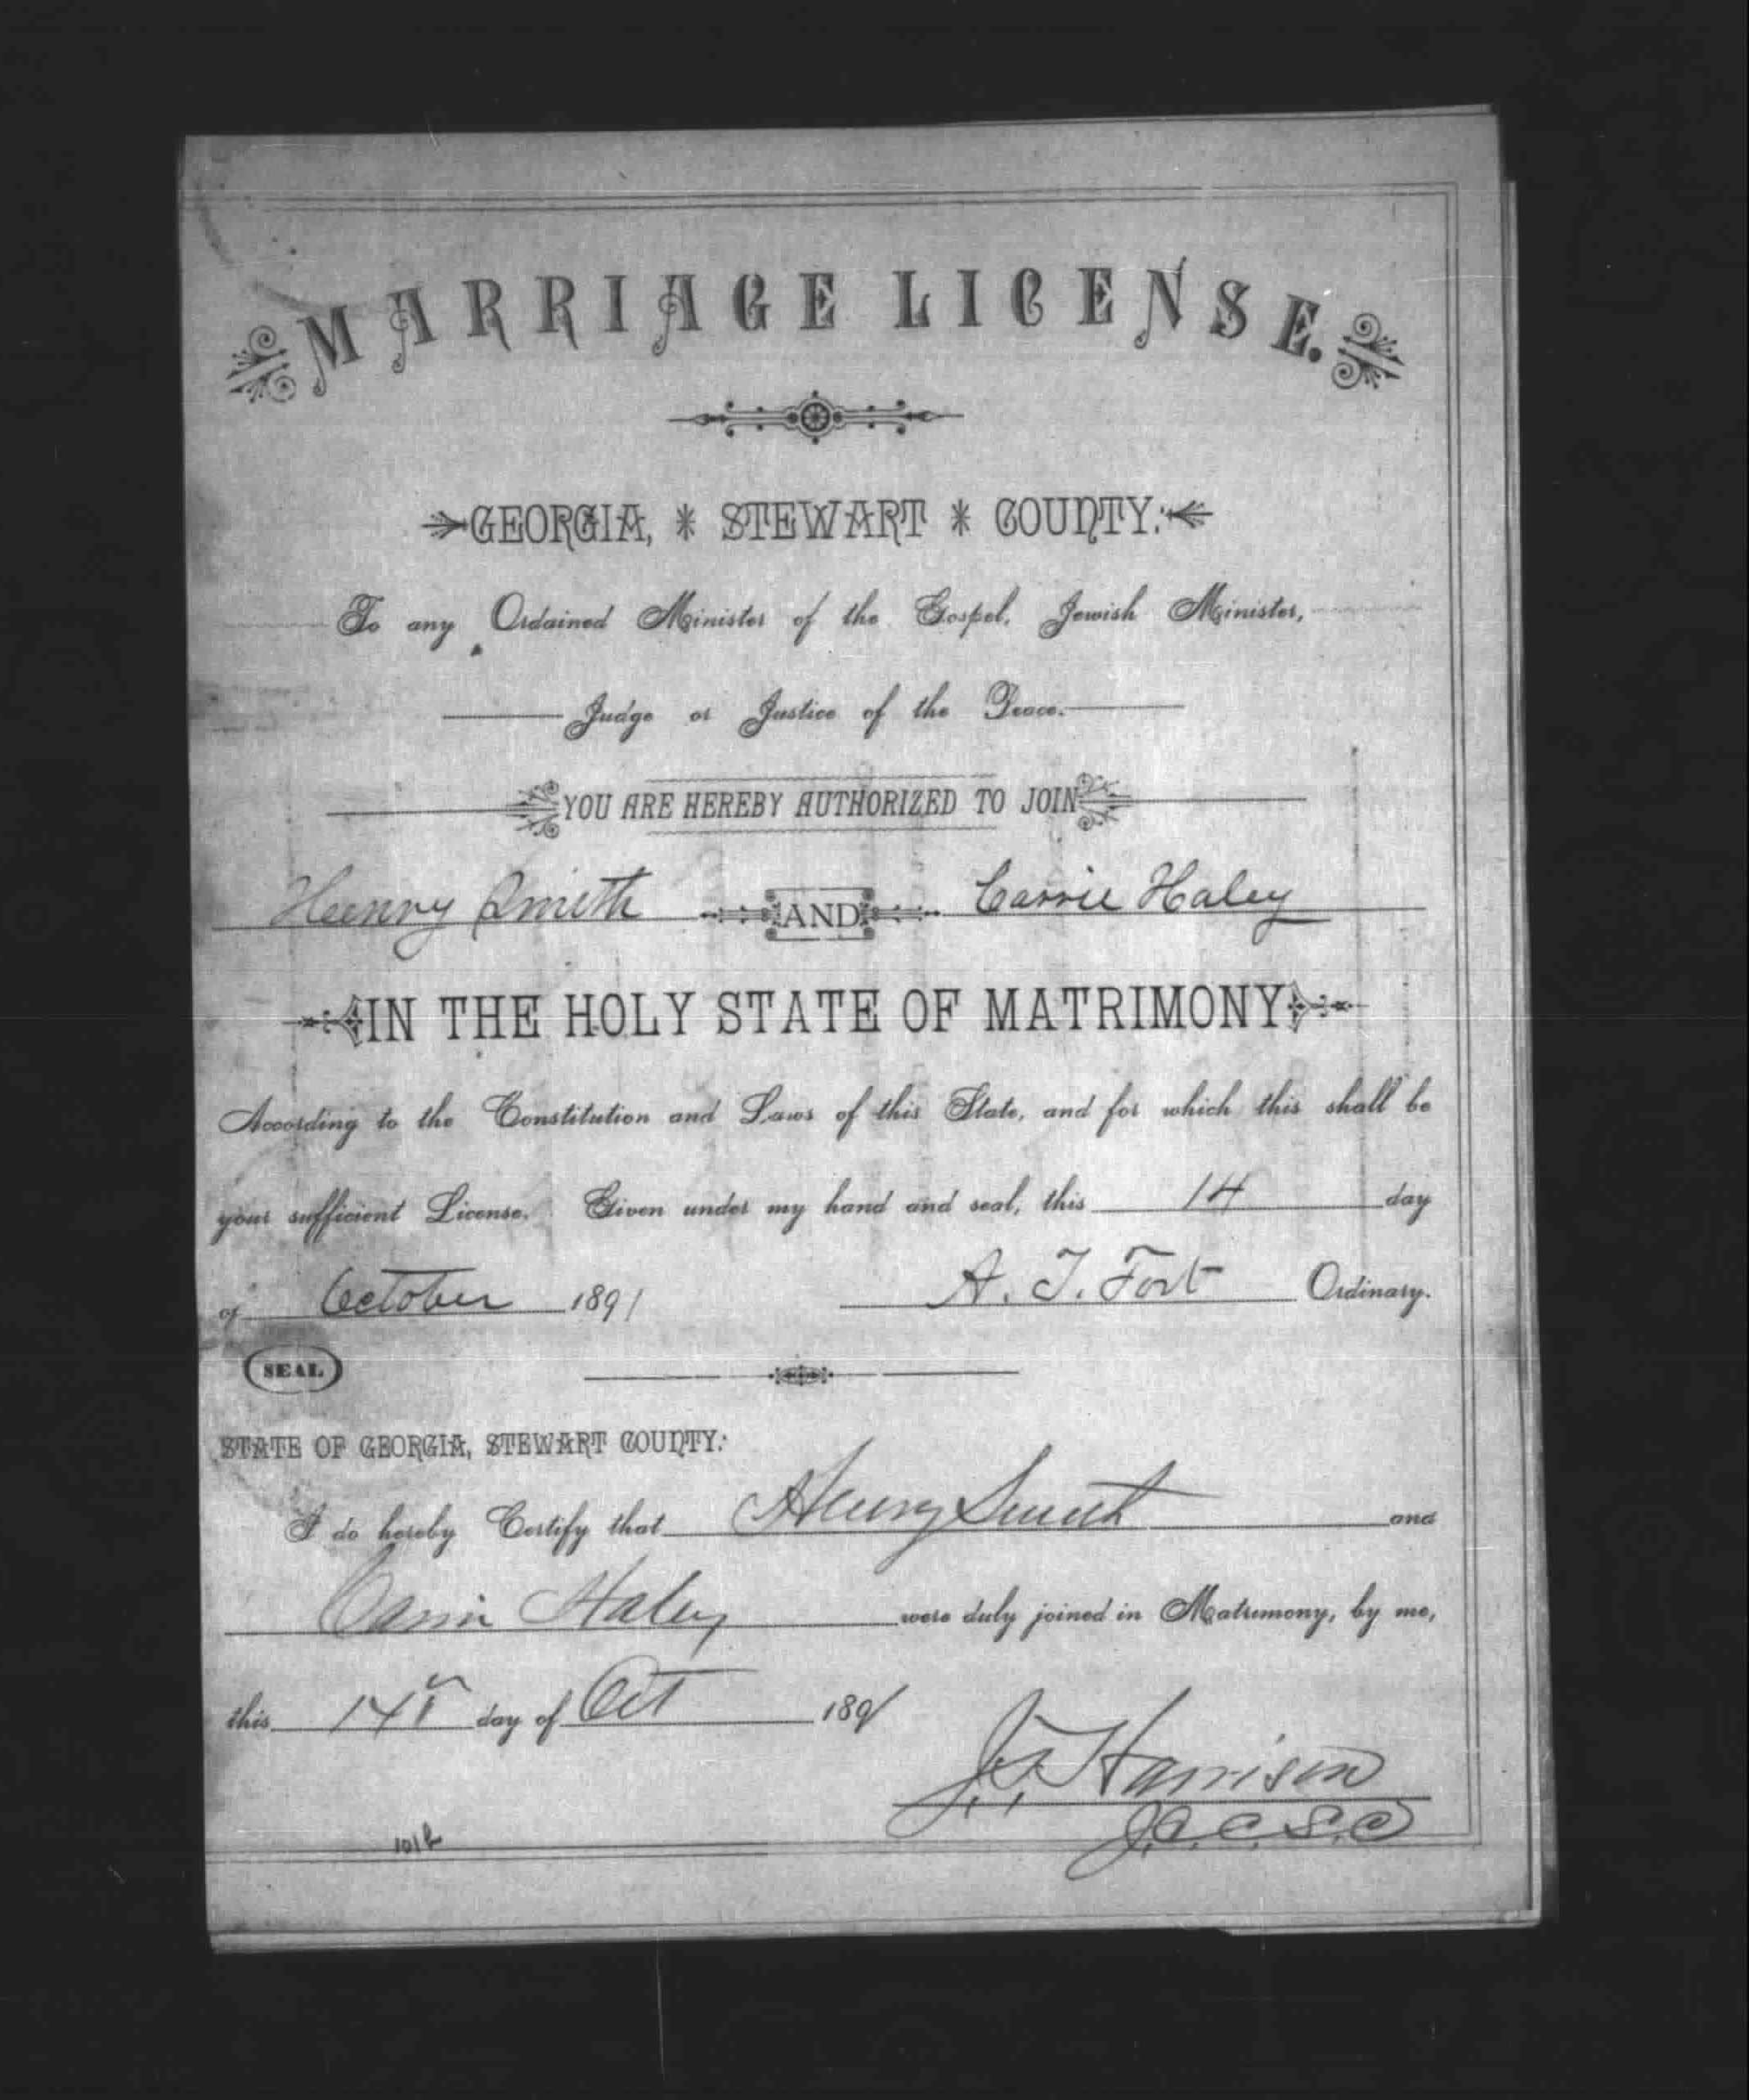 MARRIAGE LICENSE.
GEORGIA, * STEWART * COUNTY:
To any Ordained Minister of the Gospel, Jewish Minister,
Judge or Justice of the Peace.
YOU ARE HEREBY AUTHORIZED TO JOIN
Henry Smith AND Carrie Haley
IN THE HOLY STATE OF MATRIMONY
According to the Constitution and Laws of this State, and for which this shall be
your sufficient License. Given under my hand and seal, this 14 day
of October 1891 A. T. Fort Ordinary.
SEAL
STATE OF GEORGIA, STEWART COUNTY:
I do hereby Certify that Henry Smith and
Carrie Haley were duly joined in Matrimony, by me,
this 14 day of Oct 1891
Harrison